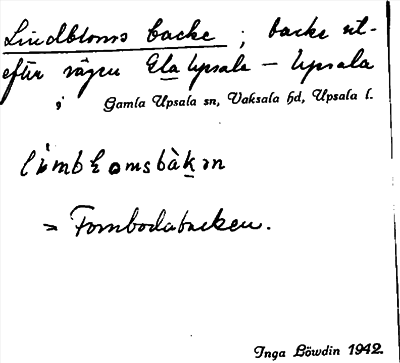 Lindbloms backe ; backe ut-
efter vägen Gla Upsala – Upsala
; Gamla Upsala sn, Vaksala hd, Upsala l.
= Tombodabacken.
Inga Löwdin 1942.